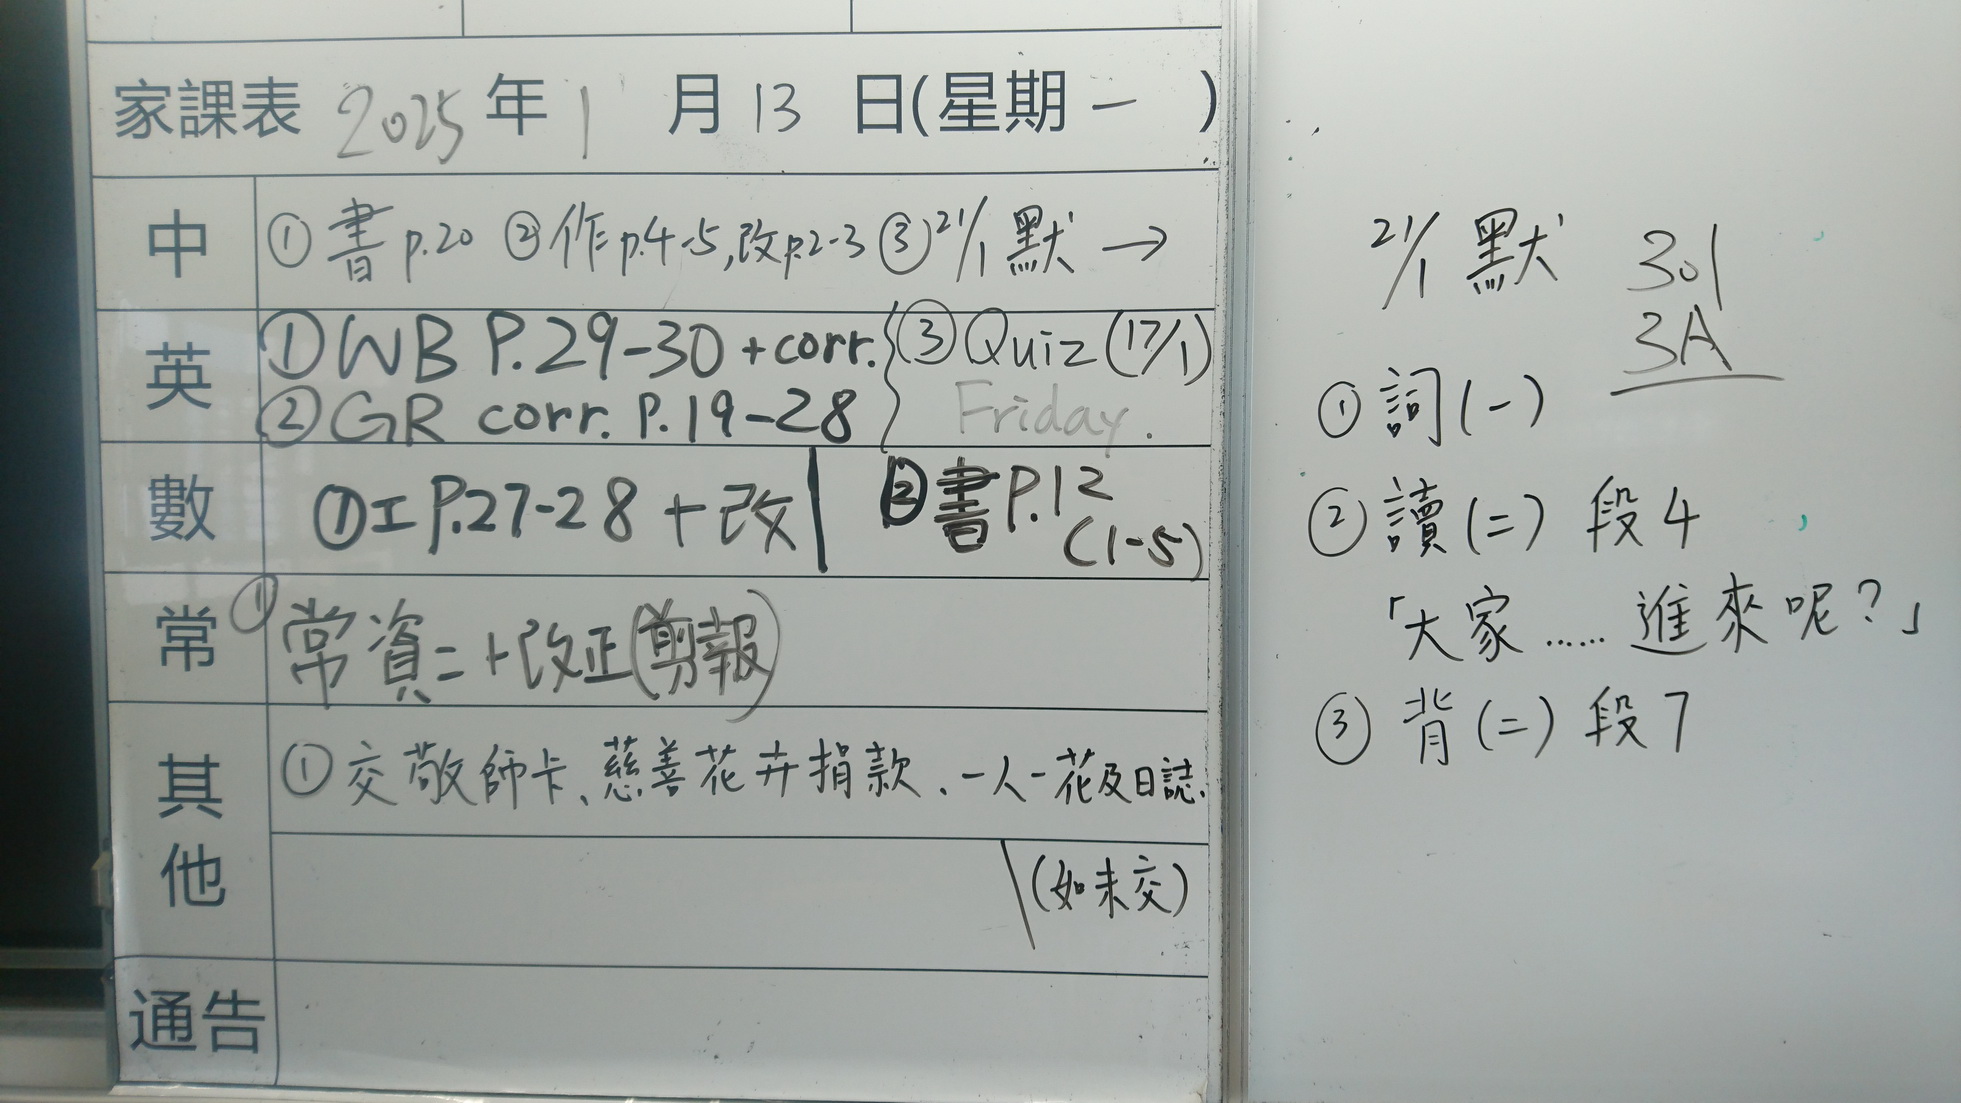 家課表 2025年1月13日(星期一)
中 ①書p.20 ②作p.4-5,改p.2-3 ③21/1默→
英 ①WB P.29-30+corr. ③Quiz(17/1)
②GR corr. P.19-28 Friday.
數 ①工P.27-28+改 ②書P.12
(1-5)
常 ①常資二+改正(剪報)
其他 ①交敬師卡、慈善花卉捐款、一人一花及日誌、
(如未交)
通告
21/1 默 301
3A
①詞(一)
②讀(二)段4
「大家……進來呢？」
③背(二)段7